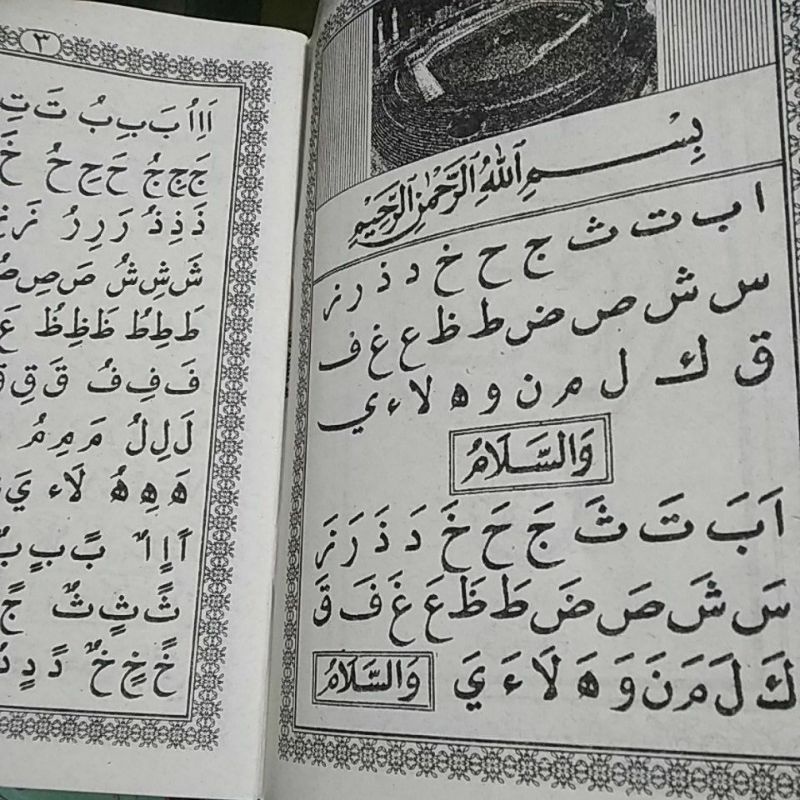 بِسْمِ اللهِ الرَّحْمٰنِ الرَّحِيْمِ
ا ب ت ث ج ح خ د ذ ر ز
س ش ص ض ط ظ ع غ ف
ق ك ل م ن و ه لا ء ي
وَالسَّلَامُ
اَ بَ تَ ثَ جَ حَ خَ دَ ذَ رَ زَ
سَ شَ صَ ضَ طَ ظَ عَ غَ فَ قَ
كَ لَ مَ نَ وَ هَ لَا ءَ يَ وَالسَّلَامُ
٣
اَ اِ اُ بَ بِ بُ تَ تِ
جَ جِ جُ حَ حِ حُ خَ
ذَ ذِ ذُ رَ رِ رُ زَ
شَ شِ شُ صَ صِ صُ
طَ طِ طُ ظَ ظِ ظُ عَ
فَ فِ فُ قَ قِ
لَ لِ لُ مَ مِ مُ
هَ هِ هُ لَا ء يَ
اً اٍ اٌ بً بٍ بٌ
ثً ثٍ ثٌ جً
خً خٍ خٌ دً دٍ